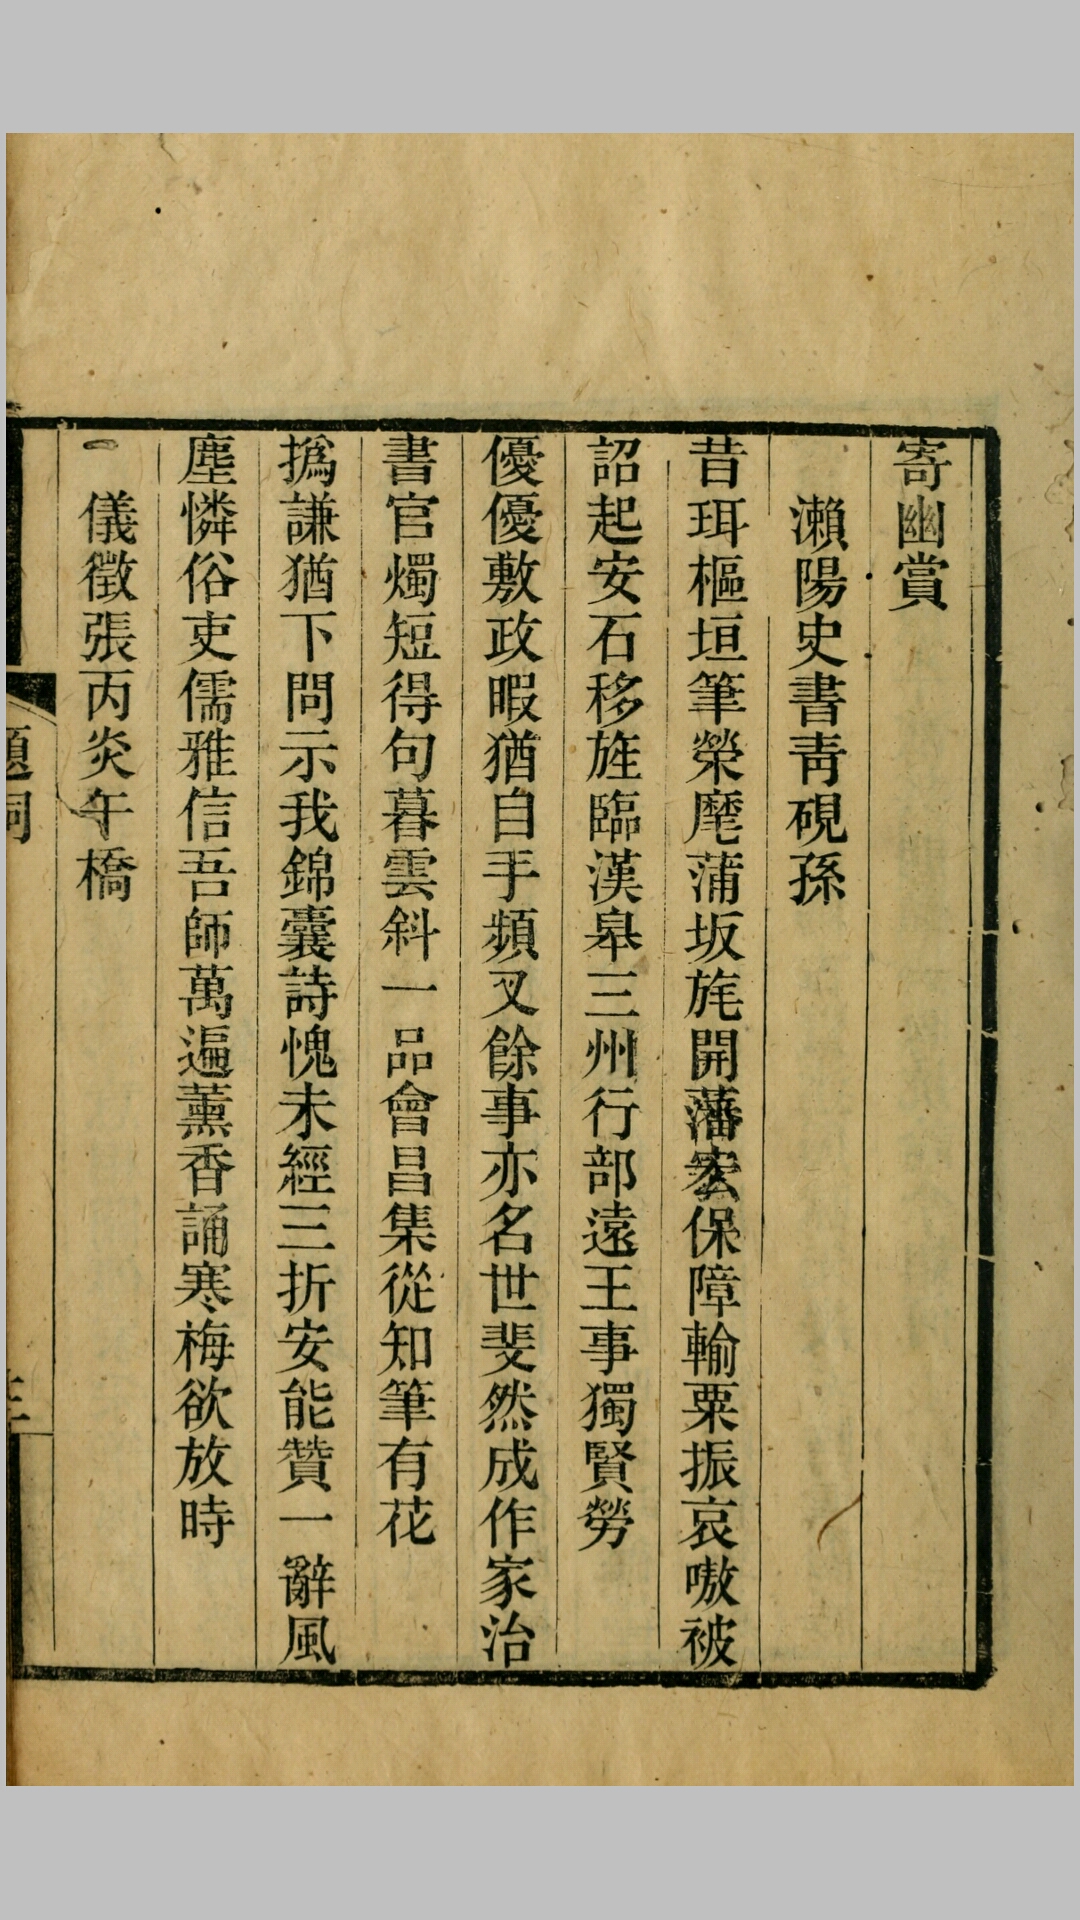 寄幽賞
瀨陽史書靑硯孫
昔珥樞垣筆榮麾蒲坂旄開藩宏保障輸粟振哀嗷被
詔起安石移旌臨漢皋三州行部遠王事獨賢勞
優優敷政暇猶自手頻叉餘事亦名世斐然成作家治
書官燭短得句暮雲斜一品會昌集從知筆有花
撝謙猶下問示我錦囊詩愧未經三折安能贊一辭風
塵憐俗吏儒雅信吾師萬遍薰香誦寒梅欲放時
儀徵張丙炎午橋
題詞
三